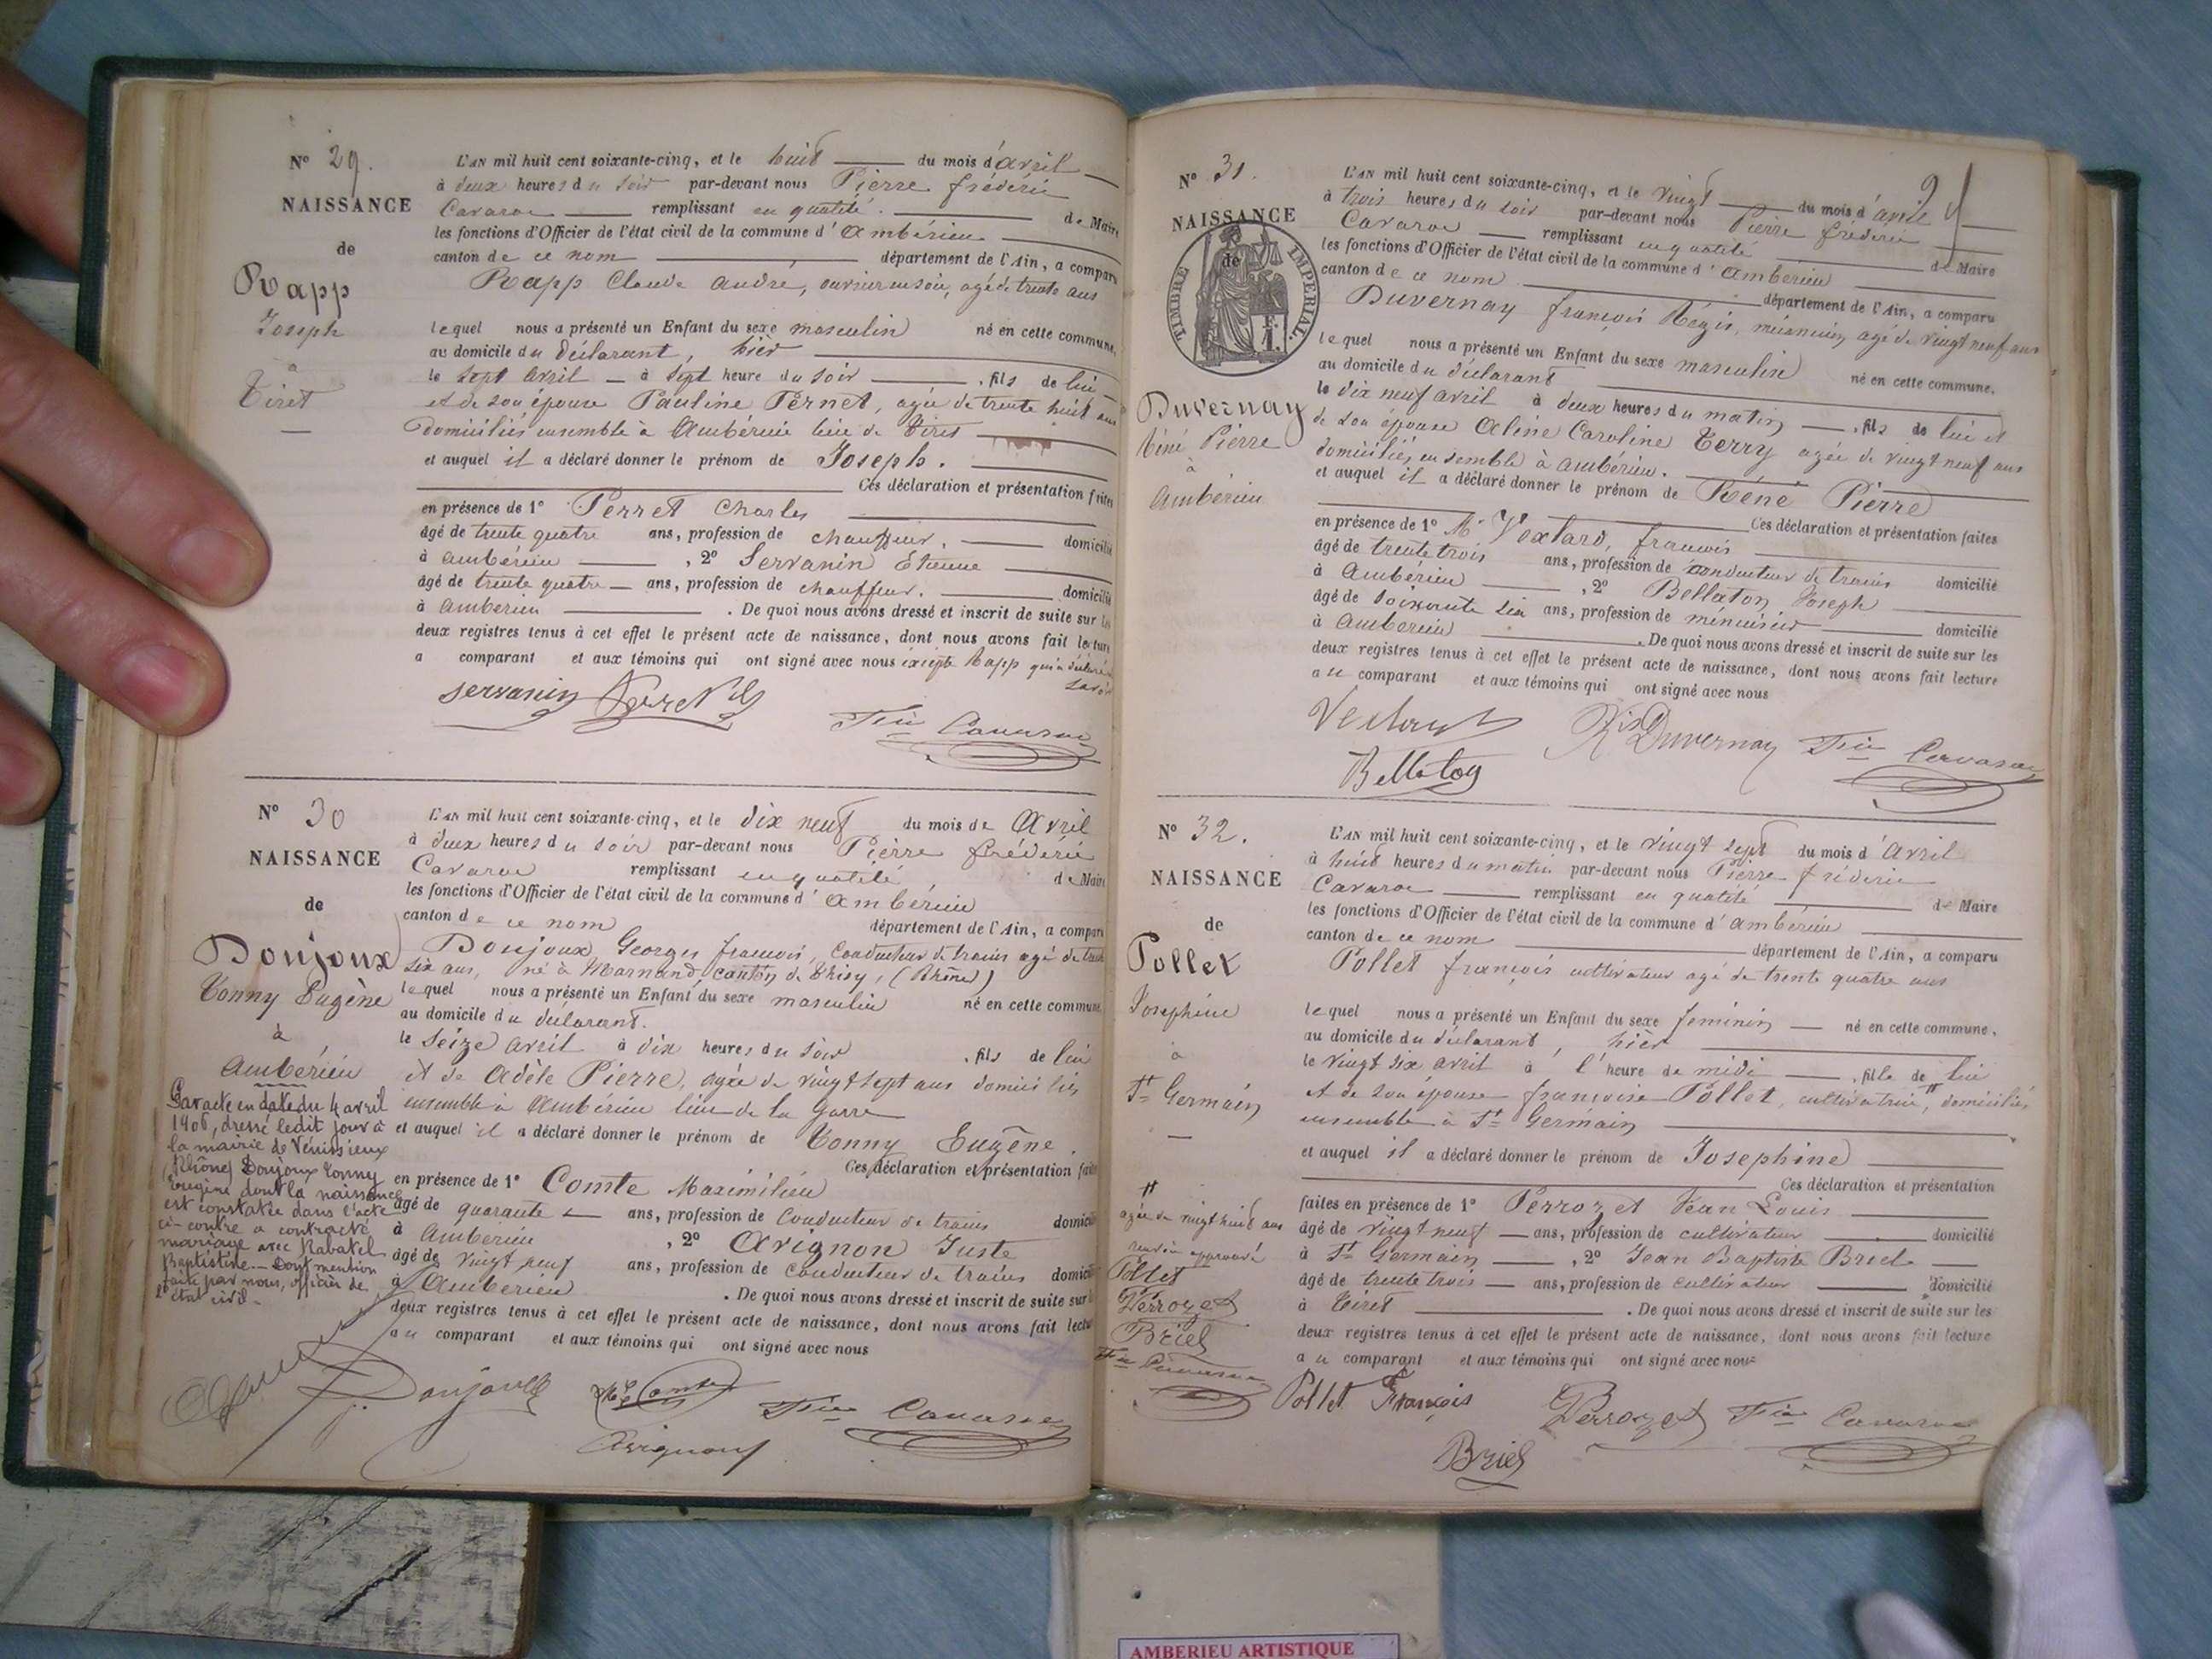 N° 29.
NAISSANCE
de
Rapp
Joseph
à
Tiret
L'AN mil huit cent soixante-cinq, et le huit du mois d'avril
à deux heures du soir par-devant nous Pierre frédéric
Cavaroc remplissant en qualité de Maire
les fonctions d'Officier de l'état civil de la commune d'Ambérieu
canton de ce nom département de l'Ain, a comparu
Rapp Claude andré, ouvrier en soie, agé de trente ans
lequel nous a présenté un Enfant du sexe masculin né en cette commune,
au domicile du déclarant, hier
le sept avril à sept heure du soir , fils de lui
et de son épouse Pauline Pernet, agée de trente huit ans
domiciliés ensemble à Ambérieu lieu de Tiret
et auquel il a déclaré donner le prénom de Joseph.
Ces déclaration et présentation faites
en présence de 1° Perret Charles
âgé de trente quatre ans, profession de chauffeur, domicilié
à ambérieu , 2° Servanin Etienne
âgé de trente quatre ans, profession de chauffeur. domicilié
à ambérieu . De quoi nous avons dressé et inscrit de suite sur les
deux registres tenus à cet effet le présent acte de naissance, dont nous avons fait lecture
a comparant et aux témoins qui ont signé avec nous excepté Rapp qui a déclaré
savoir
servanin Perret Ch
Fric Cavaroc
N° 30
NAISSANCE
de
Donjoux
Tonny Eugène
à
Ambérieu
Par acte en date du 4 avril
1906, dressé ledit jour à
la mairie de Vénissieux
(Rhône) Donjoux Tonny
Eugène dont la naissance
est constatée dans l'acte
ci-contre a contracté
mariage avec Rabatel
Baptistine. Dont mention
faite par nous, officier de
l'état civil.
L'AN mil huit cent soixante-cinq, et le dix neuf du mois de Avril
à deux heures du soir par-devant nous Pierre frédéric
Cavaroc remplissant en qualité de Maire
les fonctions d'Officier de l'état civil de la commune d'ambérieu
canton de ce nom département de l'Ain, a comparu
Donjoux Georges françois, conducteur de trains agé de trente
six ans, né à Marnand, canton de Thizy, (Rhône)
lequel nous a présenté un Enfant du sexe masculin né en cette commune,
au domicile du déclarant.
le seize avril à dix heures du soir , fils de lui
et de Adèle Pierre, agée de vingt sept ans domiciliés
ensemble à Ambérieu lieu de la Garre
et auquel il a déclaré donner le prénom de Tonny Eugène.
Ces déclaration et présentation faites
en présence de 1° Comte Maximilien
âgé de quarante ans, profession de conducteur de trains domicilié
à Ambérieu , 2° Avignon Juste
âgé de vingt neuf ans, profession de conducteur de trains domicilié
à Ambérieu . De quoi nous avons dressé et inscrit de suite sur les
deux registres tenus à cet effet le présent acte de naissance, dont nous avons fait lecture
au comparant et aux témoins qui ont signé avec nous
Donjoux Comte Fric Cavaroc
Avignon
N° 31.
NAISSANCE
de
TIMBRE IMPERIAL.
Duvernay
Réné Pierre
à
Ambérieu
L'AN mil huit cent soixante-cinq, et le vingt du mois d'avril
à trois heures du soir par-devant nous Pierre frédéric
Cavaroc remplissant en qualité de Maire
les fonctions d'Officier de l'état civil de la commune d'ambérieu
canton de ce nom département de l'Ain, a comparu
Duvernay françois Régis, mécanicien, agé de vingt neuf ans
lequel nous a présenté un Enfant du sexe masculin né en cette commune.
au domicile du déclarant
le dix neuf avril à deux heures du matin , fils de lui et
de son épouse Aline Caroline Terry agée de vingt neuf ans
domiciliés ensemble à ambérieu.
et auquel il a déclaré donner le prénom de Réné Pierre
Ces déclaration et présentation faites
en présence de 1° Mr Vexlard, françois
âgé de trente trois ans, profession de conducteur de trains domicilié
à Ambérieu , 2° Bellaton Joseph
âgé de soixante six ans, profession de menuisier domicilié
à Ambérieu . De quoi nous avons dressé et inscrit de suite sur les
deux registres tenus à cet effet le présent acte de naissance, dont nous avons fait lecture
au comparant et aux témoins qui ont signé avec nous
Vexlard Duvernay Fric Cavaroc
Bellaton
N° 32.
NAISSANCE
de
Pollet
Josephine
à
St Germain
agée de vingt huit ans
renvoi approuvé
Pollet
Perrozet
Briel
Fric Cavaroc
L'AN mil huit cent soixante-cinq, et le vingt sept du mois d'Avril
à huit heures du matin par-devant nous Pierre fréderic
Cavaroc remplissant en qualité de Maire
les fonctions d'Officier de l'état civil de la commune d'ambérieu
canton de ce nom département de l'Ain, a comparu
Pollet françois cultivateur agé de trente quatre ans
lequel nous a présenté un Enfant du sexe feminin né en cette commune.
au domicile du déclarant, hier
le vingt six avril à l'heure de midi , fille de lui
et de son épouse françoise Pollet, cultivatrice, domiciliés
ensemble à St Germain
et auquel il a déclaré donner le prénom de Josephine
Ces déclaration et présentation
faites en présence de 1° Perrozet Jean Louis
âgé de vingt neuf ans, profession de cultivateur domicilié
à St Germain , 2° Jean Baptiste Briel
âgé de trente trois ans, profession de cultivateur domicilié
à Tiret . De quoi nous avons dressé et inscrit de suite sur les
deux registres tenus à cet effet le présent acte de naissance, dont nous avons fait lecture
au comparant et aux témoins qui ont signé avec nous
Pollet François Perrozet Fric Cavaroc
Briel
AMBERIEU ARTISTIQUE